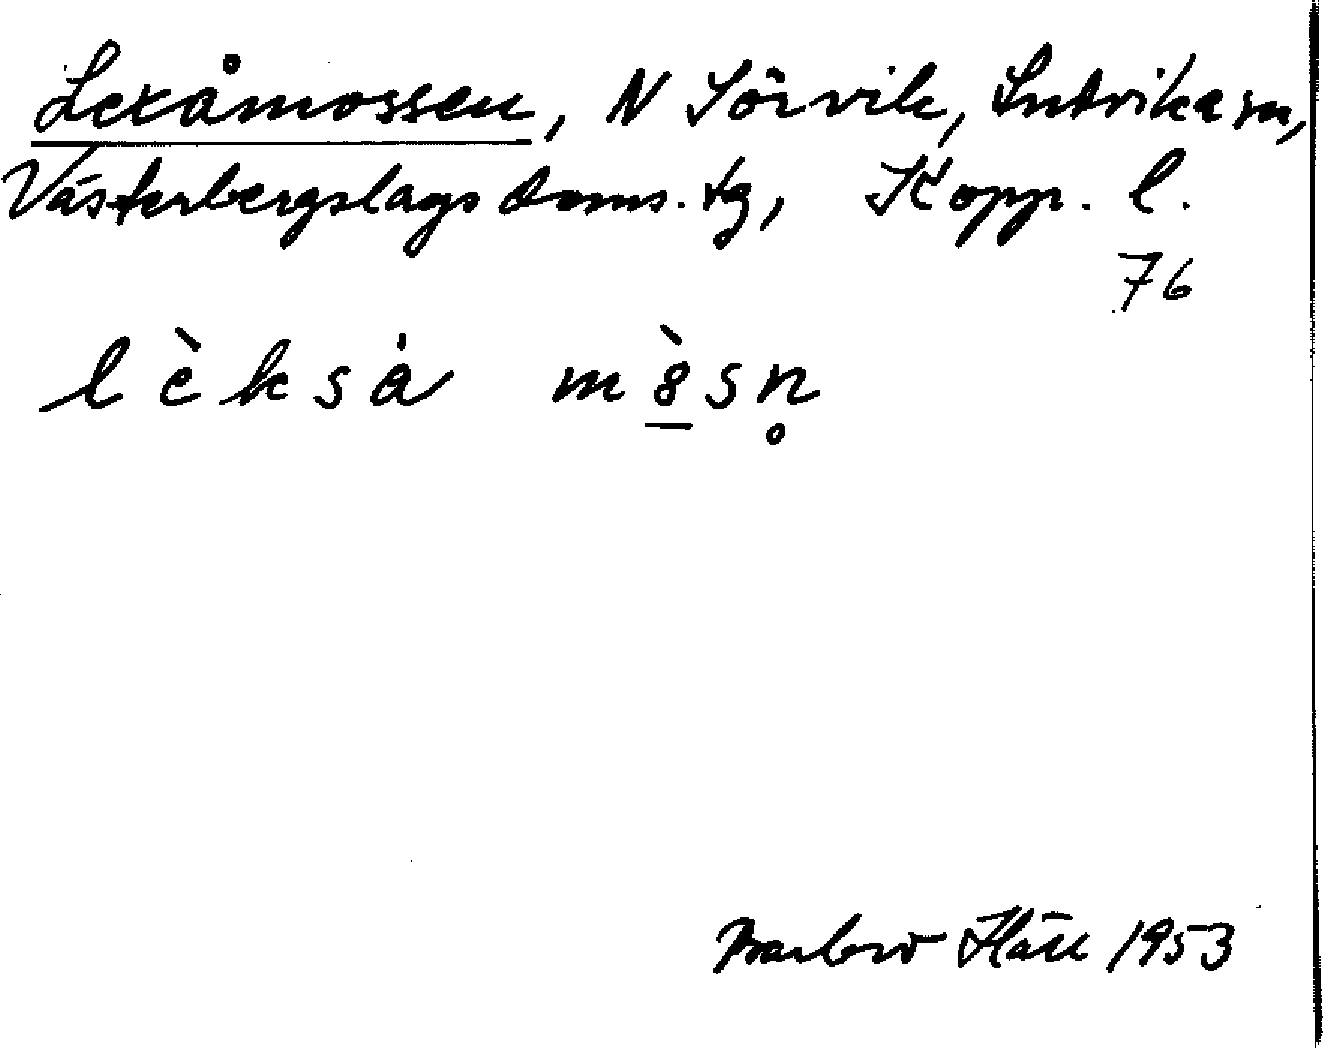 Lexåmossen, N Sörvik, Ludvika sn,
Västerbergslags doms. tg, Kopp. l.
76
lèksȧ m8̠̀sn̥
Barbro Häll 1953